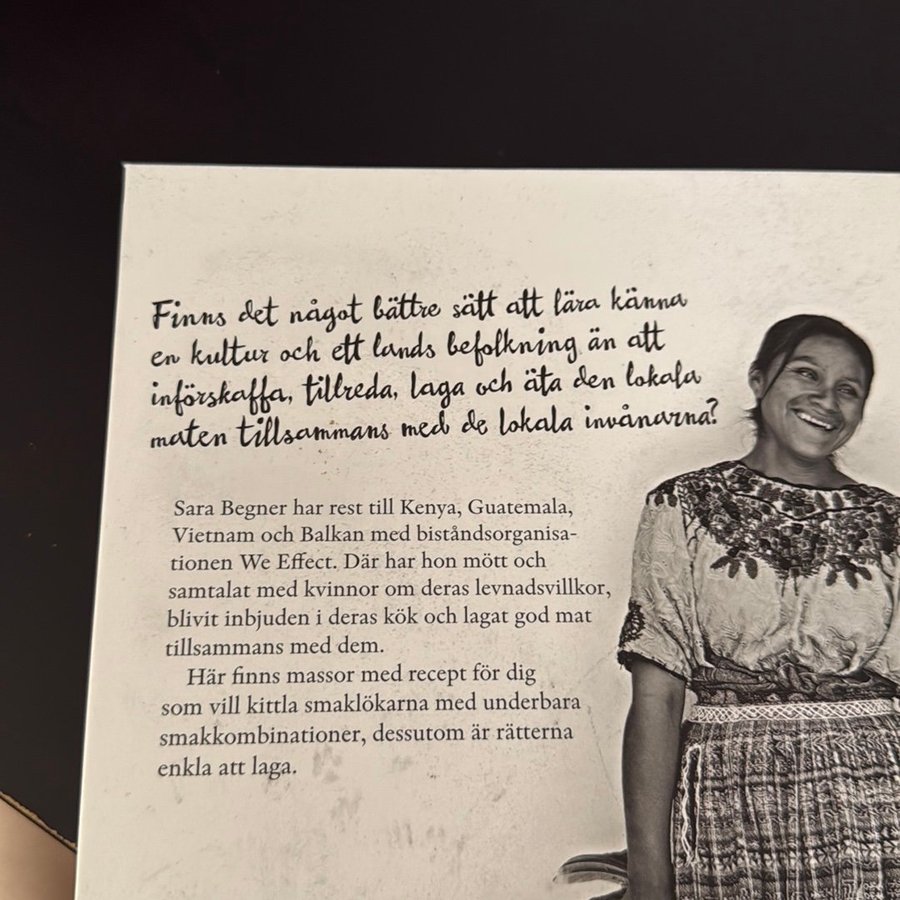 Finns det något bättre sätt att lära känna
en kultur och ett lands befolkning än att
införskaffa, tillreda, laga och äta den lokala
maten tillsammans med de lokala invånarna?
Sara Begner har rest till Kenya, Guatemala,
Vietnam och Balkan med biståndsorganisa-
tionen We Effect. Där har hon mött och
samtalat med kvinnor om deras levnadsvillkor,
blivit inbjuden i deras kök och lagat god mat
tillsammans med dem.
Här finns massor med recept för dig
som vill kittla smaklökarna med underbara
smakkombinationer, dessutom är rätterna
enkla att laga.